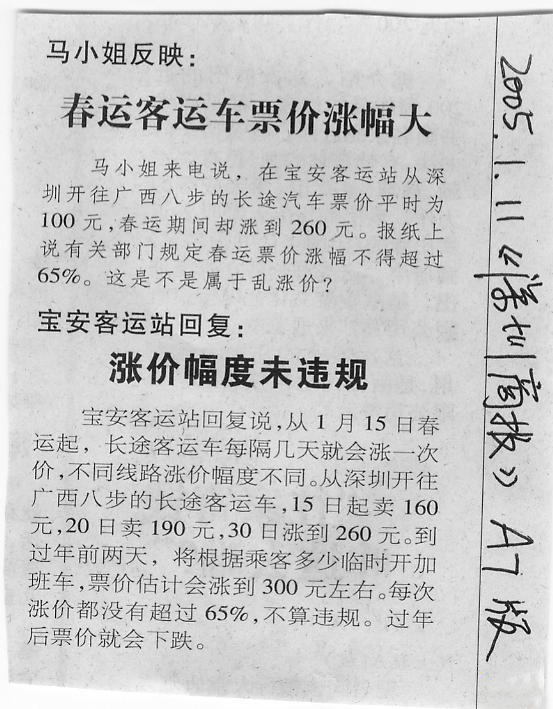 马小姐反映：
春运客运车票价涨幅大
马小姐来电说，在宝安客运站从深
圳开往广西八步的长途汽车票价平时为
100元，春运期间却涨到260元。报纸上
说有关部门规定春运票价涨幅不得超过
65%。这是不是属于乱涨价？
宝安客运站回复：
涨价幅度未违规
宝安客运站回复说，从1月15日春
运起，长途客运车每隔几天就会涨一次
价，不同线路涨价幅度不同。从深圳开往
广西八步的长途客运车，15日起卖160
元，20日卖190元，30日涨到260元。到
过年前两天，将根据乘客多少临时开加
班车，票价估计会涨到300元左右。每次
涨价都没有超过65%，不算违规。过年
后票价就会下跌。
2005.1.11《深圳商报》A7版